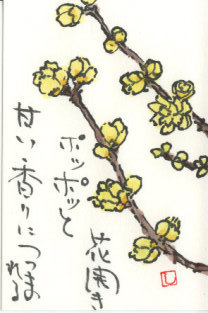 花開き
ポッポッと
甘い香りにつつま
れる